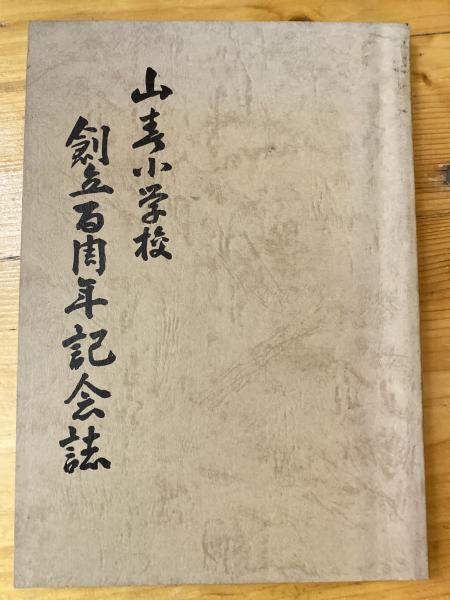 山春小学校
創立百周年記念誌